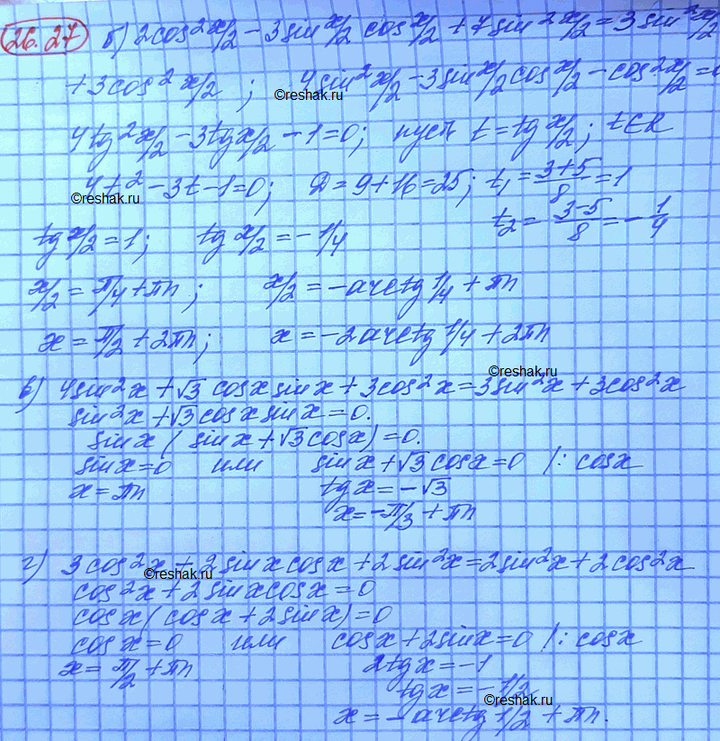 26.27 б) 2cos²x/2 - 3sin x/2 cos x/2 + 7sin²x/2 = 3sin²x/2
+ 3cos²x/2 ; 4sin²x/2 - 3sin x/2 cos x/2 - cos²x/2 = 0
©reshak.ru
4tg²x/2 - 3tg x/2 - 1 = 0; пусть t = tg x/2; t∈R
4t² - 3t - 1 = 0; D = 9 + 16 = 25; t₁ = (3+5)/8 = 1
©reshak.ru
t₂ = (3-5)/8 = -1/4
tg x/2 = 1; tg x/2 = -1/4
x/2 = π/4 + πn; x/2 = -arctg 1/4 + πn
x = π/2 + 2πn; x = -2arctg 1/4 + 2πn
©reshak.ru
в) 4sin²x + √3 cosx sinx + 3cos²x = 3sin²x + 3cos²x
sin²x + √3 cosx sinx = 0.
sinx (sinx + √3 cosx) = 0.
sinx = 0 или sinx + √3 cosx = 0 /: cosx
x = πn tgx = -√3
x = -π/3 + πn
г) 3cos²x + 2sinx cosx + 2sin²x = 2sin²x + 2cos²x
©reshak.ru
cos²x + 2sinx cosx = 0
cosx (cosx + 2sinx) = 0
cosx = 0 или cosx + 2sinx = 0 /: cosx
x = π/2 + πn 2tgx = -1
tgx = -1/2
©reshak.ru
x = -arctg 1/2 + πn.